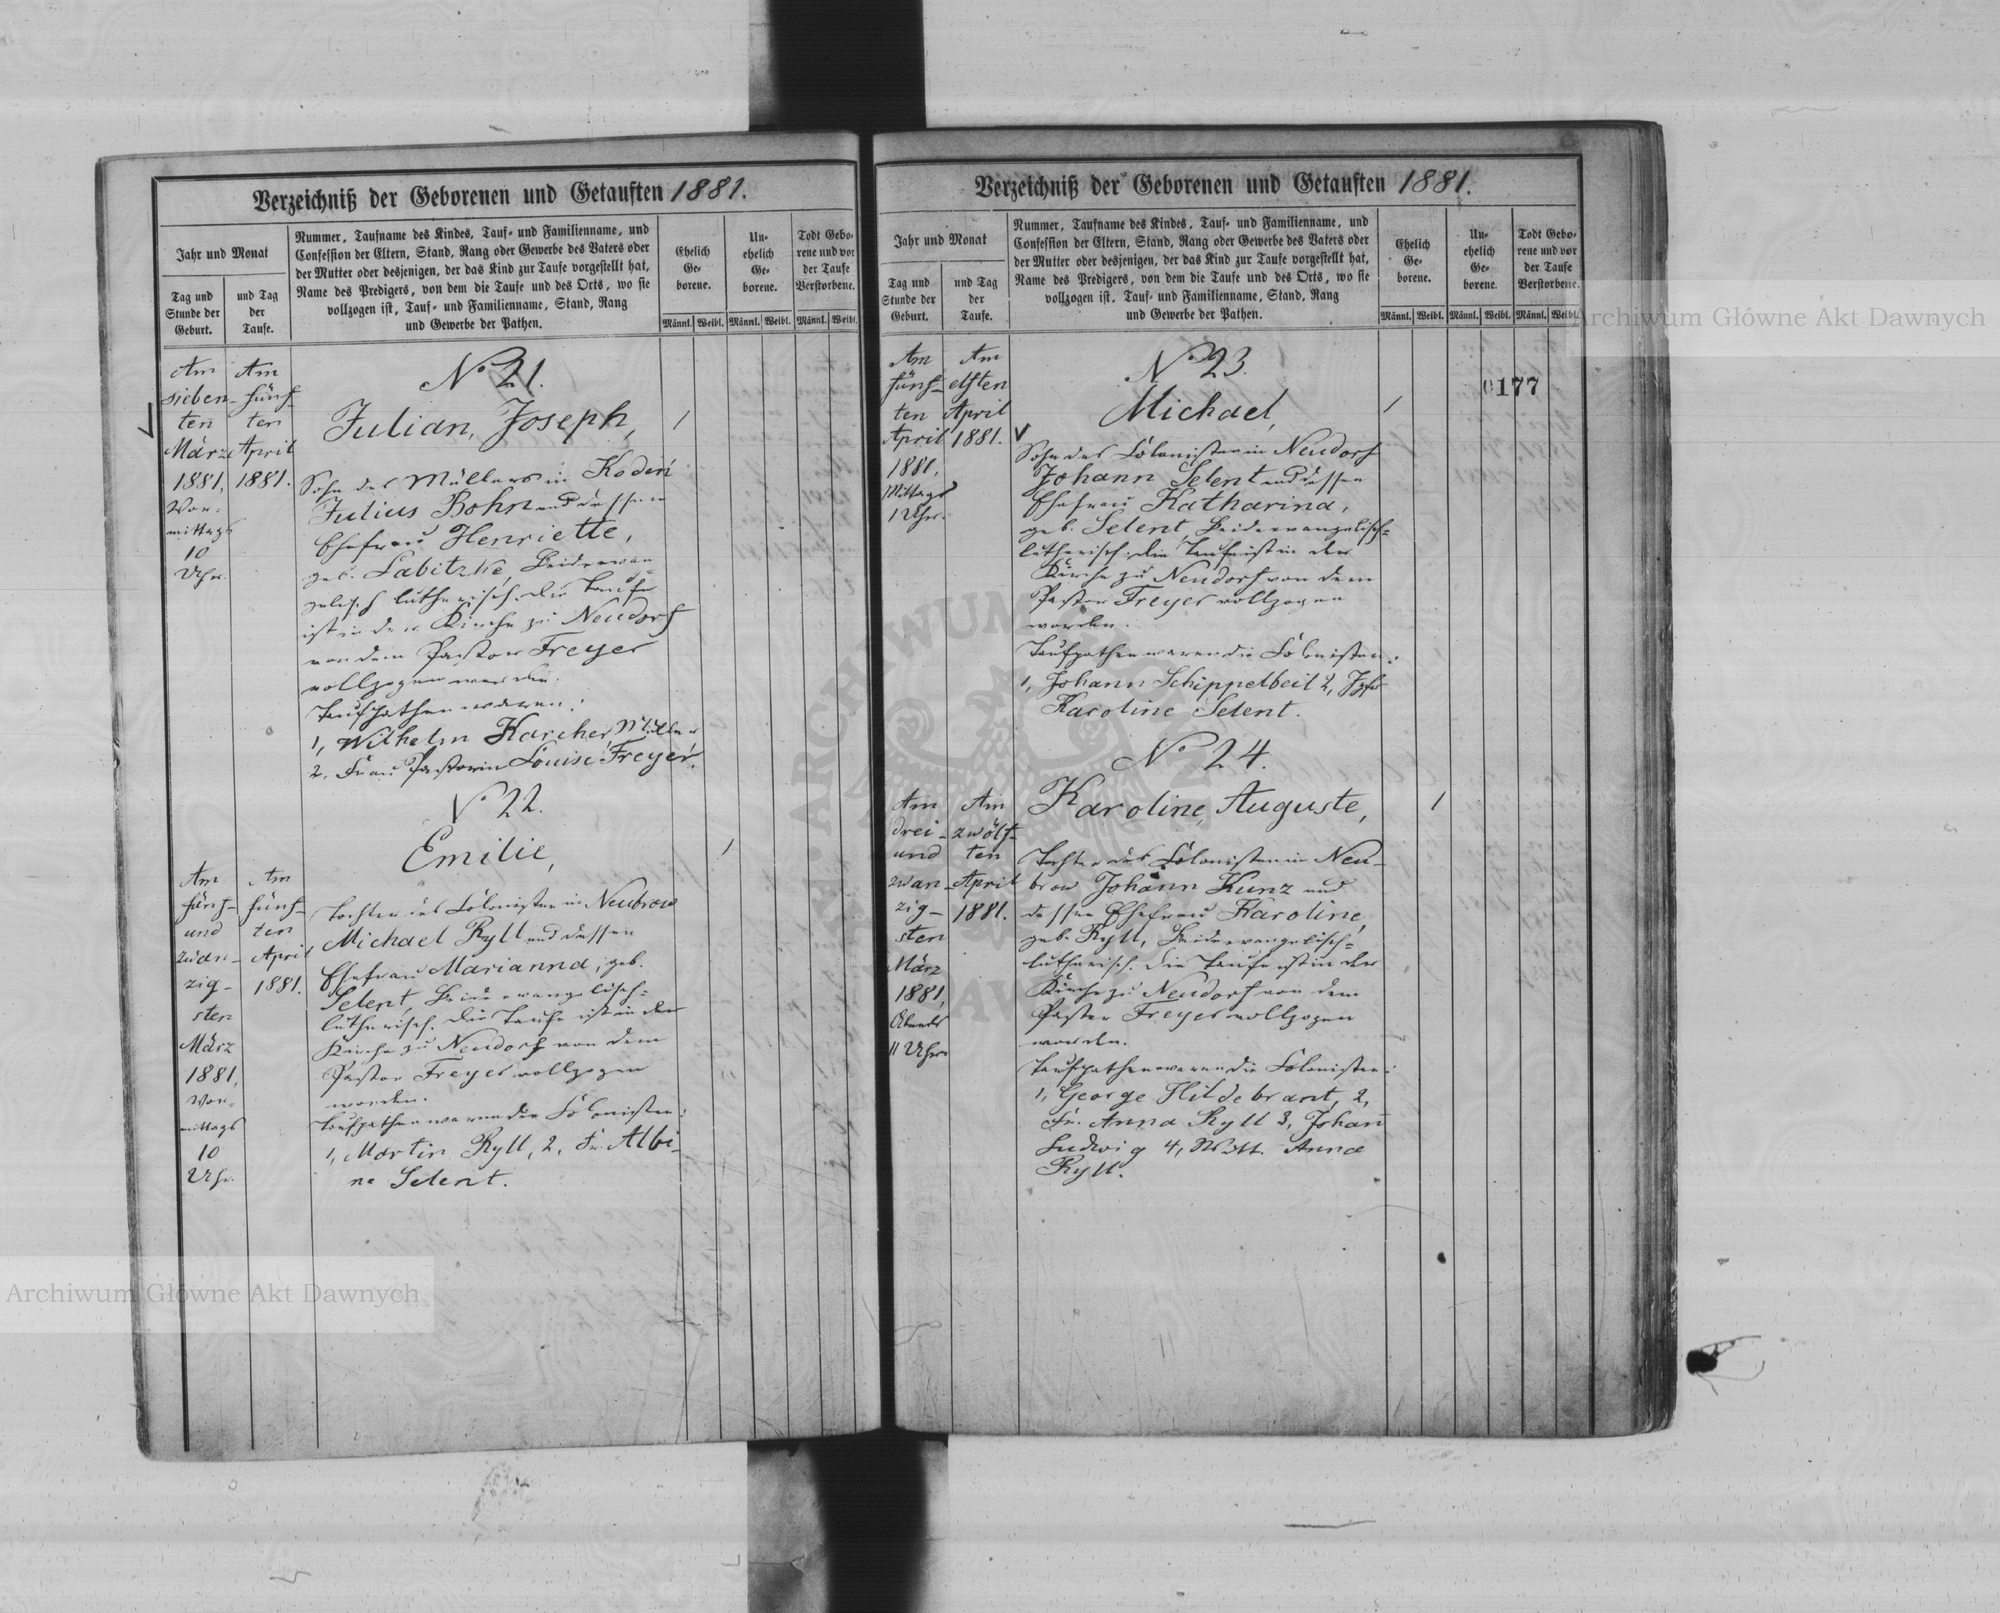 Verzeichniß der Geborenen und Getauften 1881.
Jahr und Monat
Tag und
Stunde der
Geburt.
und Tag
der
Taufe.
Nummer, Taufname des Kindes, Tauf- und Familienname, und
Confession der Eltern, Stand, Rang oder Gewerbe des Vaters oder
der Mutter oder desjenigen, der das Kind zur Taufe vorgestellt hat,
Name des Predigers, von dem die Taufe und des Orts, wo sie
vollzogen ist, Tauf- und Familienname, Stand, Rang
und Gewerbe der Pathen.
Ehelich
Ge-
borene.
Un-
ehelich
Ge-
borene.
Todt Gebo-
rene und vor
der Taufe
Verstorbene.
Männl. Weibl. Männl. Weibl. Männl. Weibl.
Am
sieben-
ten
März
1881,
Vor-
mittags
10
Uhr.
Am
fünf-
ten
April
1881.
No 21.
Julian, Joseph,
Sohn des Müllers in Kodeń
Julius Bohn und dessen
Ehefrau Henriette,
geb. Labitzke, Beide evan-
gelisch lutherisch. Die Taufe
ist in der Kirche zu Neudorf
von dem Pastor Freyer
vollzogen worden.
Taufpathen waren:
1, Wilhelm Karcher, Müller
2. Frau Pastorin Louise Freyer.
No 22.
Emilie,
Am
fünf-
und
zwan-
zig-
sten
März
1881,
Vor-
mittags
10
Uhr.
Am
fünf-
ten
April
1881.
Tochter des Colonisten in Neubrow
Michael Ryll und dessen
Ehefrau Marianna, geb.
Selent, Beide evangelisch-
lutherisch. Die Taufe ist in der
Kirche zu Neudorf von dem
Pastor Freyer vollzogen
worden.
Taufpathen waren die Colonisten:
1, Martin Ryll, 2, Fr. Albi-
ne Selent.
Verzeichniß der Geborenen und Getauften 1881.
Jahr und Monat
Tag und
Stunde der
Geburt.
und Tag
der
Taufe.
Nummer, Taufname des Kindes, Tauf- und Familienname, und
Confession der Eltern, Stand, Rang oder Gewerbe des Vaters oder
der Mutter oder desjenigen, der das Kind zur Taufe vorgestellt hat,
Name des Predigers, von dem die Taufe und des Orts, wo sie
vollzogen ist, Tauf- und Familienname, Stand, Rang
und Gewerbe der Pathen.
Ehelich
Ge-
borene.
Un-
ehelich
Ge-
borene.
Todt Gebo-
rene und vor
der Taufe
Verstorbene.
Männl. Weibl. Männl. Weibl. Männl. Weibl.
Archiwum Główne Akt Dawnych
0177
Am
fünf-
ten
April
1881,
Mittags
1 Uhr.
Am
elften
April
1881.
No 23.
Michael,
Sohn des Colonisten in Neudorf
Johann Selent und dessen
Ehefrau Katharina,
geb. Selent, Beide evangelisch-
lutherisch. Die Taufe ist in der
Kirche zu Neudorf von dem
Pastor Freyer vollzogen
worden.
Taufpathen waren die Colonisten:
1, Johann Schippelbeil 2, Jgfr
Karoline Selent.
No 24.
Karoline, Auguste,
Am
drei-
und
zwan-
zig-
sten
März
1881,
Abends
11 Uhr.
Am
zwölf-
ten
April
1881.
Tochter des Colonisten in Neu-
brow Johann Kunz und
dessen Ehefrau Karoline,
geb. Ryll, Beide evangelisch-
lutherisch. Die Taufe ist in der
Kirche zu Neudorf von dem
Pastor Freyer vollzogen
worden.
Taufpathen waren die Colonisten:
1, George Hildebrant, 2,
Fr. Anna Ryll 3, Johann
Ludwig 4, Anna
Ryll.
Archiwum Główne Akt Dawnych